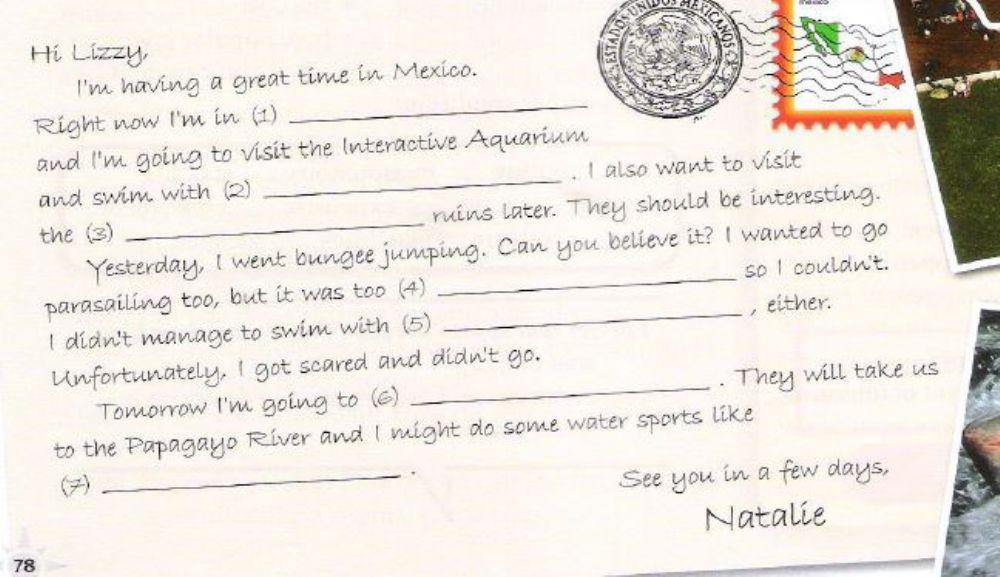 mexico
ESTADOS UNIDOS MEXICANOS
Hi Lizzy,
I'm having a great time in Mexico.
Right now I'm in (1) ____________
and I'm going to visit the Interactive Aquarium
and swim with (2) ____________. I also want to visit
the (3) ____________ ruins later. They should be interesting.
Yesterday, I went bungee jumping. Can you believe it? I wanted to go
parasailing too, but it was too (4) ____________ so I couldn't.
I didn't manage to swim with (5) ____________, either.
Unfortunately, I got scared and didn't go.
Tomorrow I'm going to (6) ____________. They will take us
to the Papagayo River and I might do some water sports like
(7) ____________.
See you in a few days,
Natalie
78